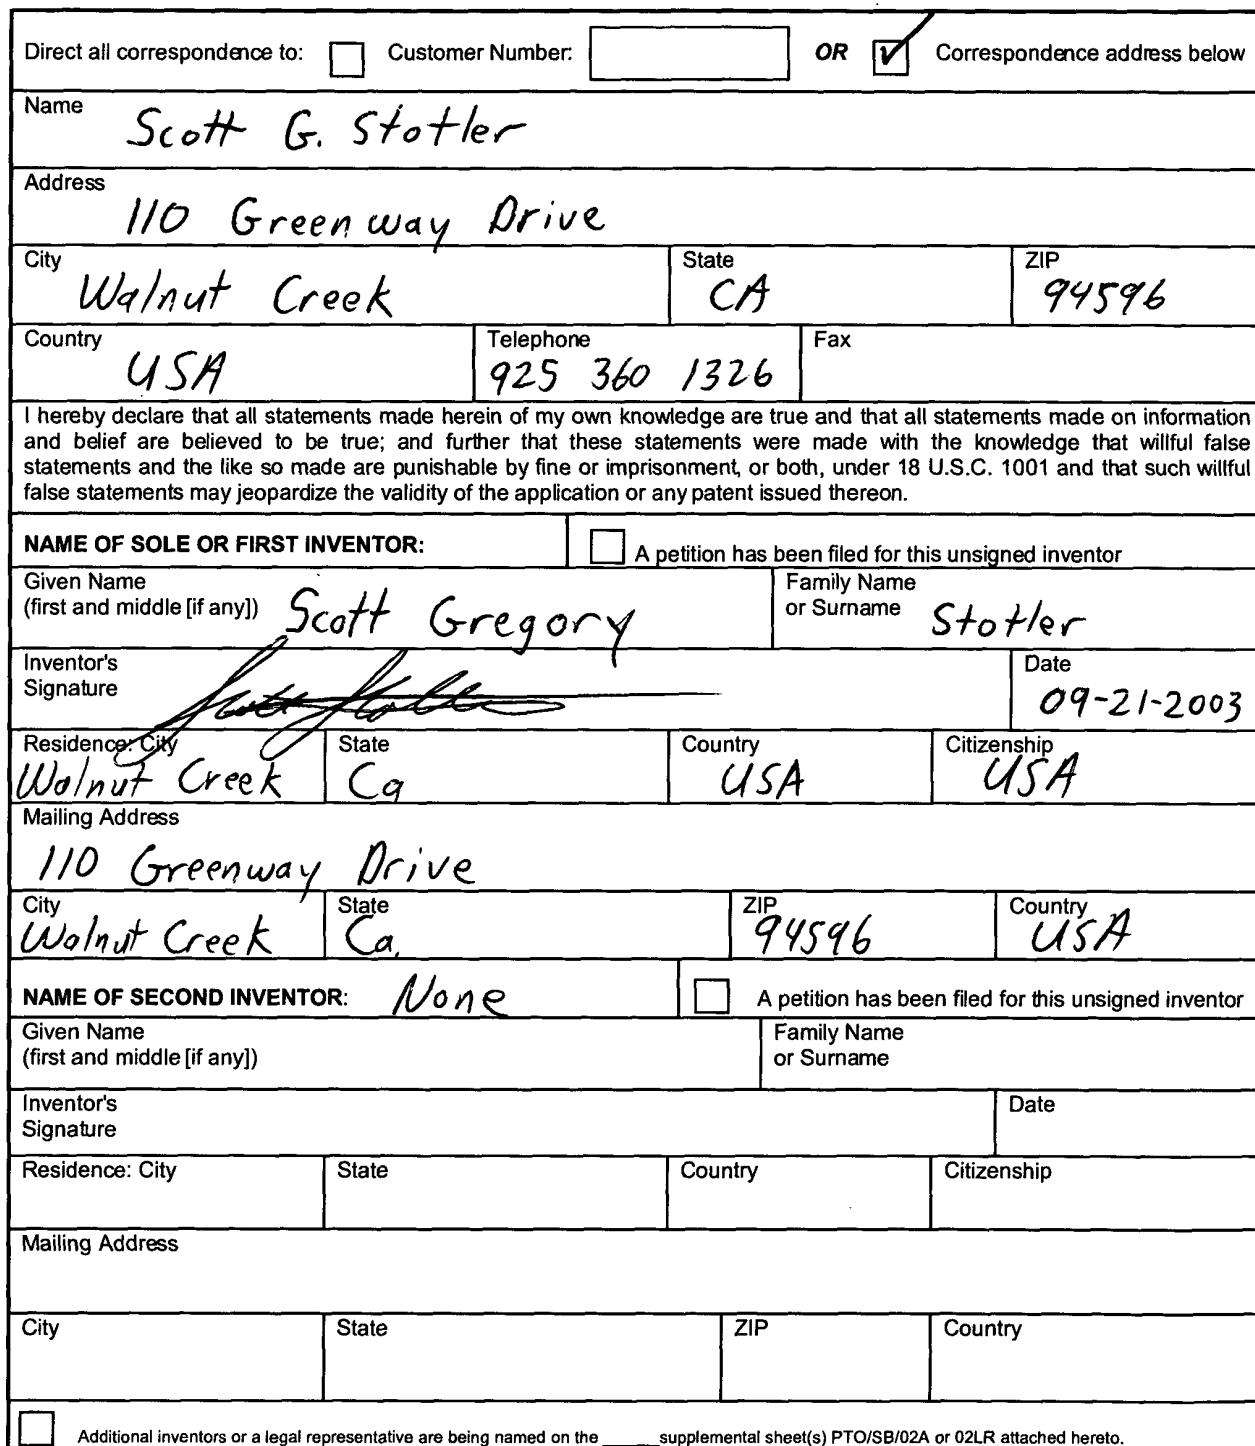 Direct all correspondence to: Customer Number: OR Correspondence address below
Name
Scott G. Stotler
Address
110 Greenway Drive
City State ZIP
Walnut Creek CA 94596
Country Telephone Fax
USA 925 360 1326
I hereby declare that all statements made herein of my own knowledge are true and that all statements made on information
and belief are believed to be true; and further that these statements were made with the knowledge that willful false
statements and the like so made are punishable by fine or imprisonment, or both, under 18 U.S.C. 1001 and that such willful
false statements may jeopardize the validity of the application or any patent issued thereon.
NAME OF SOLE OR FIRST INVENTOR: A petition has been filed for this unsigned inventor
Given Name Family Name
(first and middle [if any]) Scott Gregory or Surname Stotler
Inventor's Date
Signature Scott Stotler 09-21-2003
Residence: City State Country Citizenship
Walnut Creek Ca USA USA
Mailing Address
110 Greenway Drive
City State ZIP Country
Walnut Creek Ca. 94596 USA
NAME OF SECOND INVENTOR: None A petition has been filed for this unsigned inventor
Given Name Family Name
(first and middle [if any]) or Surname
Inventor's Date
Signature
Residence: City State Country Citizenship
Mailing Address
City State ZIP Country
Additional inventors or a legal representative are being named on the ______ supplemental sheet(s) PTO/SB/02A or 02LR attached hereto.